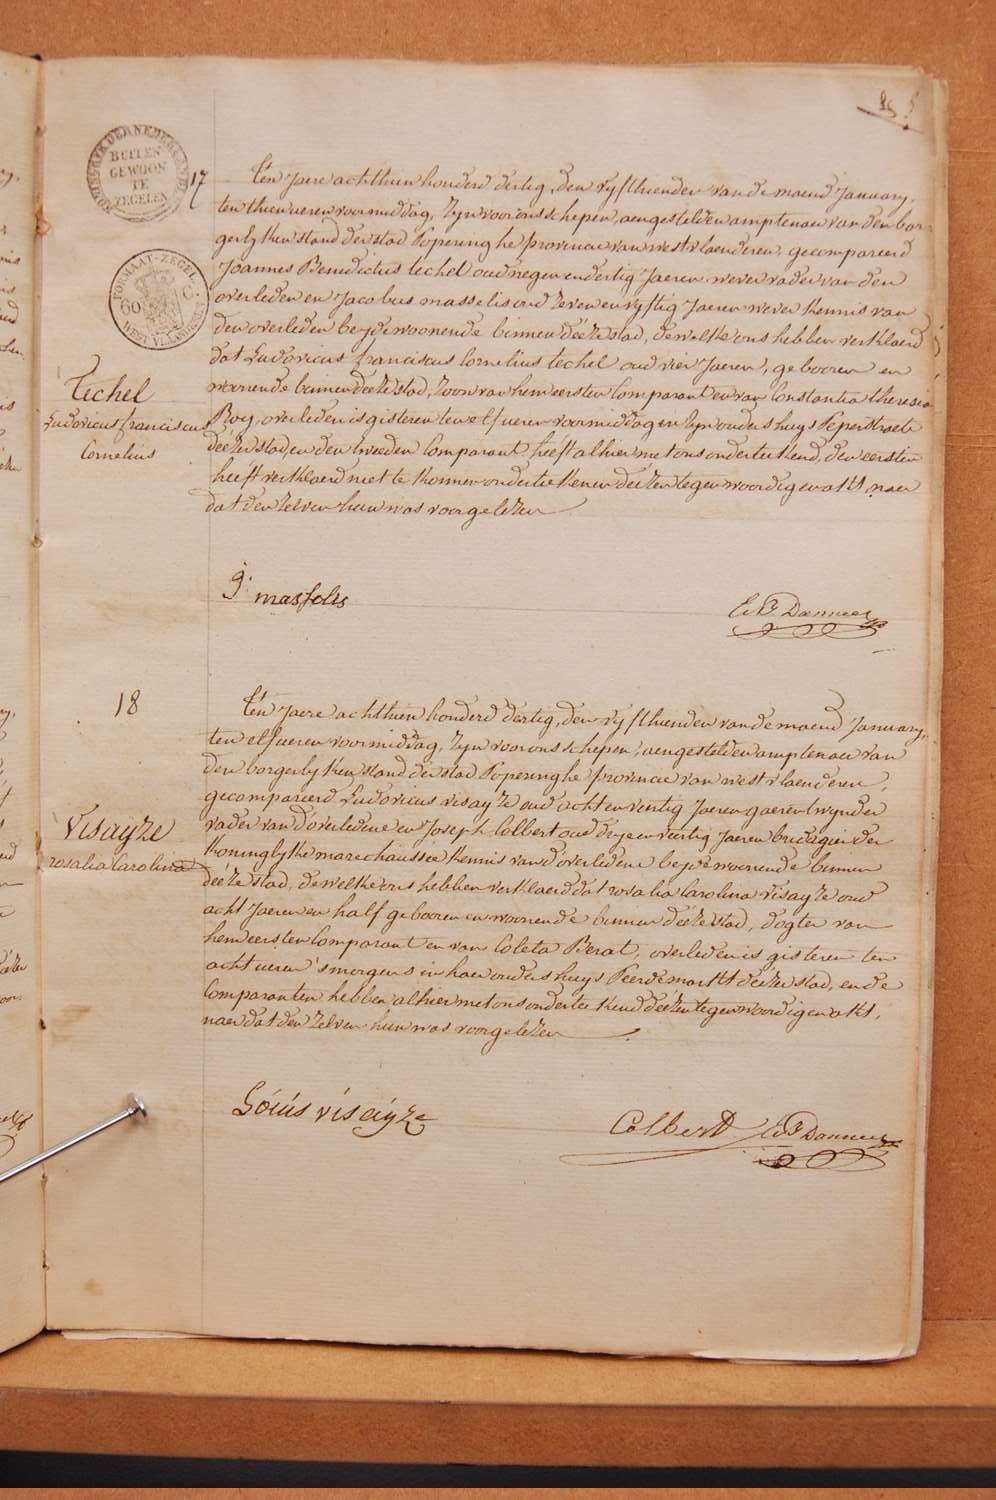 KONINGRYK DER NEDERLANDEN
BUITEN
GEWOON
TE
ZEGELEN
FORMAAT-ZEGEL
60 C
WEST VLAANDEREN
17
Ten Jaere achthien honderd dertig, den vyfthienden van de maend January,
ten thien ueren voormiddag, Zyn voor ons schepen, aengestelden amptenaer van den bor-
gerlyken stand der stad Poperinghe provincie van westvlaenderen, gecompareerd
Joannes Benedictus techel oud negen en dertig Jaeren wever vader van den
overleden en Jacobus masselis oud zeven en vyftig Jaeren wever kennis van
den overleden beyde woonende binnen deéze stad, dewelke ons hebben verklaerd
dat Ludovicus franciscus Cornelius techel oud vier Jaeren, gebooren en
woonende binnen deéze stad, Zoon van hem eersten Comparant en van Constantia theresia
Roy, overleden is gisteren ten elf ueren voormiddag in Zyn ouders huys Peperstraete
deézer stad en den tweeden Comparant heeft alhier met ons onderteekend, den eersten
heeft verklaerd niet te konnen onderteekenen deézen tegenwoordigen akt, naer
dat den zelven hun was voorgelezen
Techel
Ludovicus franciscus
Cornelius
J. masselis
18
Ten Jaere achthien honderd dertig, den vyfthienden van de maend January,
ten elf ueren voormiddag, Zyn voor ons schepen, aengestelden amptenaer van
den borgerlyken stand der stad Poperinghe provincie van westvlaenderen,
gecompareerd Ludovicus visayze oud acht en veertig Jaeren gaerentwynder
vader van d'overledene en Joseph Colbert oud drye en veertig Jaeren brigadier der
koninglyke marechaussee kennis van d'overledene beyde woonende binnen
deéze stad, dewelke ons hebben verklaerd dat rosalia Carolina visayze oud
acht Jaeren en half gebooren en woonende binnen deéze stad, dogter van
hem eersten Comparant en van Coleta Berat, overleden is gisteren ten
acht ueren 's morgens in haer ouders huys Peerdemarkt deézer stad, en de
Comparanten hebben alhier met ons onderteekend deézen tegenwoordigen akt,
naer dat den zelven hun was voorgelezen
Visayze
rosalia Carolina
Lóúis vísáyze
Colbert